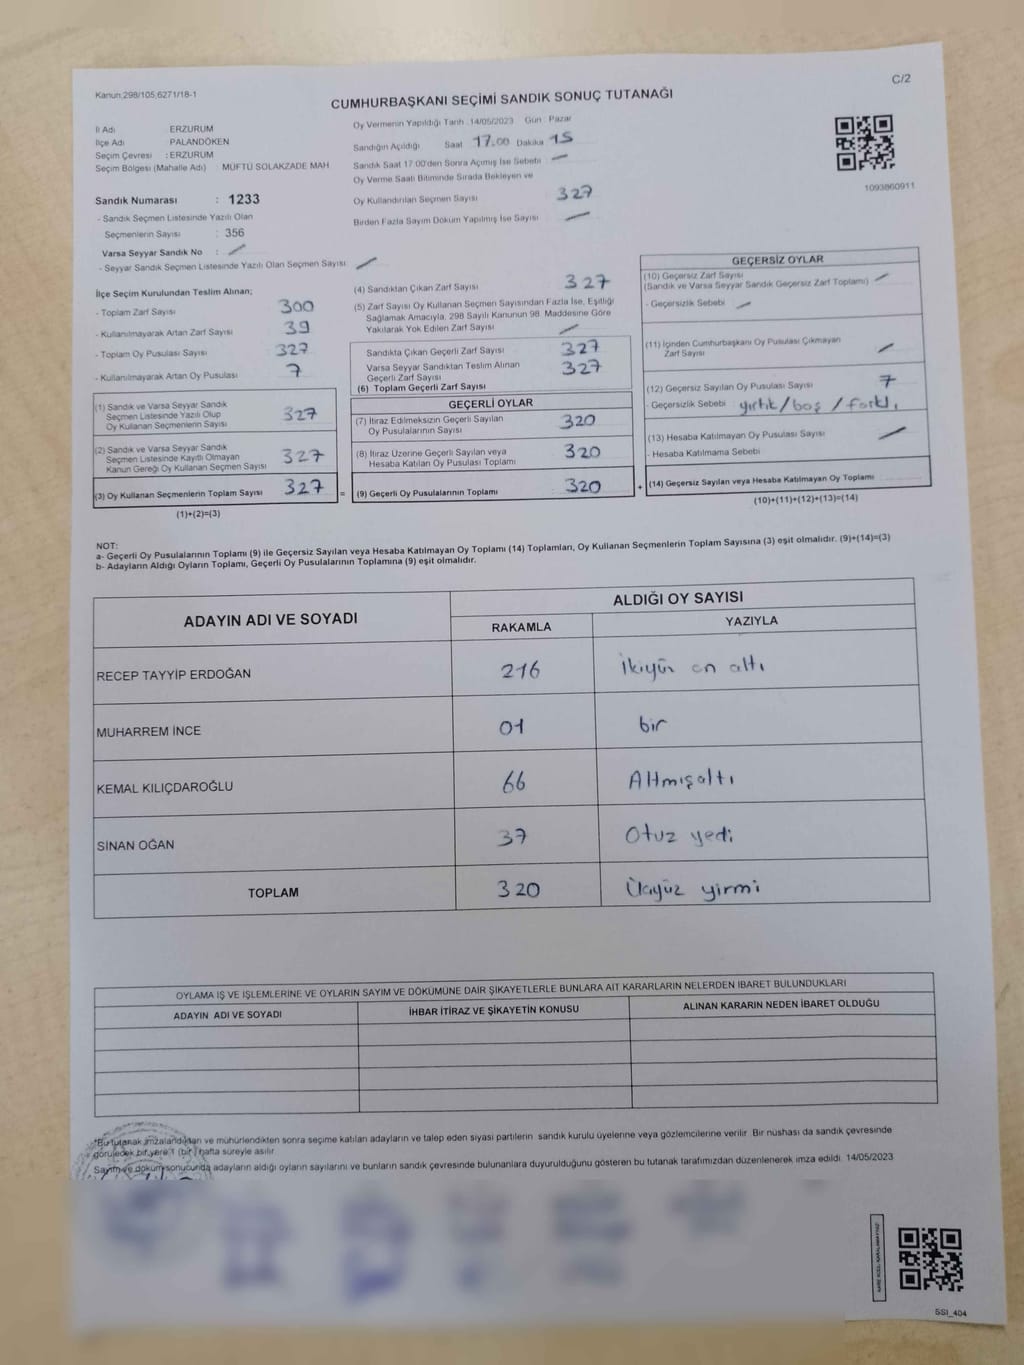 Kanun,298/105,6271/18-1
C/2
CUMHURBAŞKANI SEÇİMİ SANDIK SONUÇ TUTANAĞI
İl Adı ERZURUM
İlçe Adı PALANDÖKEN
Seçim Çevresi : ERZURUM
Seçim Bölgesi (Mahalle Adı) : MÜFTÜ SOLAKZADE MAH.
Sandık Numarası : 1233
- Sandık Seçmen Listesinde Yazılı Olan
Seçmenlerin Sayısı : 356
Varsa Seyyar Sandık No :
- Seyyar Sandık Seçmen Listesinde Yazılı Olan Seçmen Sayısı
Oy Vermenin Yapıldığı Tarih :14/05/2023 Gün : Pazar
Sandığın Açıldığı Saat 17.00 Dakika 15
Sandık Saat 17.00'den Sonra Açımış İse Sebebi :
Oy Verme Saati Bitiminde Sırada Bekleyen ve
Oy Kullandırılan Seçmen Sayısı 327
Birden Fazla Sayım Döküm Yapılmış İse Sayısı :
1093860911
İlçe Seçim Kurulundan Teslim Alınan;
- Toplam Zarf Sayısı 300
- Kullanılmayarak Artan Zarf Sayısı 39
- Toplam Oy Pusulası Sayısı 327
- Kullanılmayarak Artan Oy Pusulası 7
(1) Sandık ve Varsa Seyyar Sandık
Seçmen Listesinde Yazılı Olup
Oy Kullanan Seçmenlerin Sayısı 327
(2) Sandık ve Varsa Seyyar Sandık
Seçmen Listesinde Kayıtlı Olmayan
Kanun Gereği Oy Kullanan Seçmen Sayısı 327
(3) Oy Kullanan Seçmenlerin Toplam Sayısı 327
(1)+(2)=(3)
=
(4) Sandıktan Çıkan Zarf Sayısı 327
(5) Zarf Sayısı Oy Kullanan Seçmen Sayısından Fazla İse, Eşitliği
Sağlamak Amacıyla, 298 Sayılı Kanunun 98. Maddesine Göre
Yakılarak Yok Edilen Zarf Sayısı
Sandıkta Çıkan Geçerli Zarf Sayısı 327
Varsa Seyyar Sandıktan Teslim Alınan 327
Geçerli Zarf Sayısı
(6) Toplam Geçerli Zarf Sayısı
GEÇERLİ OYLAR
(7) İtiraz Edilmeksizin Geçerli Sayılan 320
Oy Pusulalarının Sayısı
(8) İtiraz Üzerine Geçerli Sayılan veya 320
Hesaba Katılan Oy Pusulası Toplamı
(9) Geçerli Oy Pusulalarının Toplamı 320
+
GEÇERSİZ OYLAR
(10) Geçersiz Zarf Sayısı
(Sandık ve Varsa Seyyar Sandık Geçersiz Zarf Toplamı)
- Geçersizlik Sebebi
(11) İçinden Cumhurbaşkanı Oy Pusulası Çıkmayan
Zarf Sayısı
(12) Geçersiz Sayılan Oy Pusulası Sayısı 7
- Geçersizlik Sebebi yırtık/boş/farklı
(13) Hesaba Katılmayan Oy Pusulası Sayısı
- Hesaba Katılmama Sebebi
(14) Geçersiz Sayılan veya Hesaba Katılmayan Oy Toplamı
(10)+(11)+(12)+(13)=(14)
NOT:
a- Geçerli Oy Pusulalarının Toplamı (9) ile Geçersiz Sayılan veya Hesaba Katılmayan Oy Toplamı (14) Toplamları, Oy Kullanan Seçmenlerin Toplam Sayısına (3) eşit olmalıdır. (9)+(14)=(3)
b- Adayların Aldığı Oyların Toplamı, Geçerli Oy Pusulalarının Toplamına (9) eşit olmalıdır.
ADAYIN ADI VE SOYADI
ALDIĞI OY SAYISI
RAKAMLA YAZIYLA
RECEP TAYYİP ERDOĞAN 216 İkiyüz on altı
MUHARREM İNCE 01 bir
KEMAL KILIÇDAROĞLU 66 Altmışaltı
SİNAN OĞAN 37 Otuz yedi
TOPLAM 320 Üçyüz yirmi
OYLAMA İŞ VE İŞLEMLERİNE VE OYLARIN SAYIM VE DÖKÜMÜNE DAİR ŞİKAYETLERLE BUNLARA AİT KARARLARIN NELERDEN İBARET BULUNDUKLARI
ADAYIN ADI VE SOYADI İHBAR İTİRAZ VE ŞİKAYETİN KONUSU ALINAN KARARIN NEDEN İBARET OLDUĞU
*Bu tutanak imzalandıktan ve mühürlendikten sonra seçime katılan adayların ve talep eden siyasi partilerin sandık kurulu üyelerine veya gözlemcilerine verilir. Bir nüshası da sandık çevresinde
görülecek bir yere 1 (bir) hafta süreyle asılır.
Sayım ve döküm sonucunda adayların aldığı oyların sayılarını ve bunların sandık çevresinde bulunanlara duyurulduğunu gösteren bu tutanak tarafımızdan düzenlenerek imza edildi. 14/05/2023
SSI_404